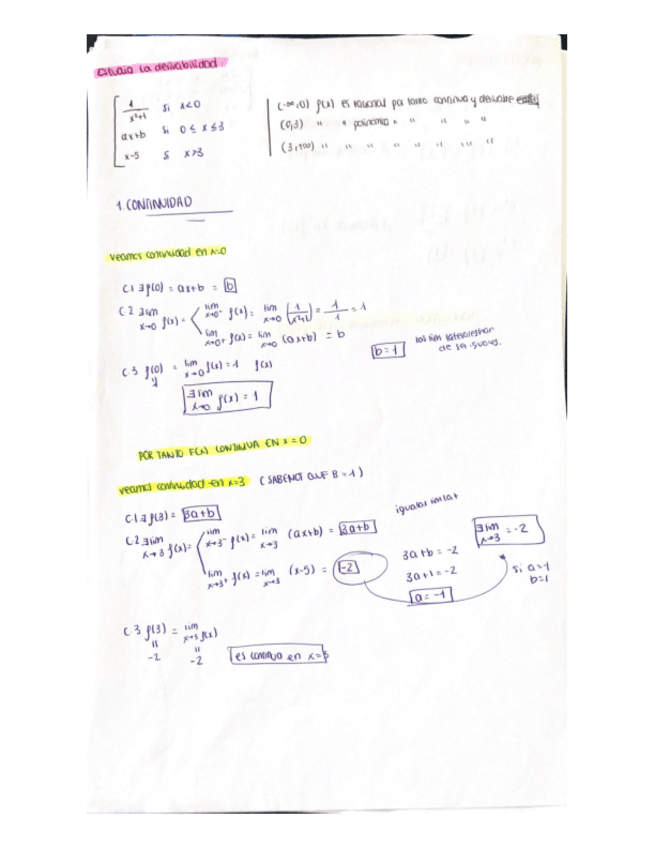 Estudia la derivabilidad
1/x²+1 si x<0
ax+b si 0 ≤ x ≤ 3
x-5 si x>3
(-∞,0) f(x) es racional por tanto continua y derivable
(0,3) " " polinomio " " " " "
(3,+∞) " " " " " " " "
1. CONTINUIDAD
veamos continuidad en x=0
C.1 ∃f(0) = ax+b = b
C.2 ∃lim x→0 f(x) = lim x→0⁻ f(x) = lim x→0 (1/x²+1) = 1/1 = 1
lim x→0⁺ f(x) = lim x→0 (ax+b) = b
b=1 los lim laterales han de ser iguales.
C.3 f(0) = lim x→0 f(x) = 1 f(x)
1
∃lim x→0 f(x) = 1
POR TANTO F(x) CONTINUA EN x=0
veamos continuidad en x=3 (SABEMOS QUE B=1)
C.1 ∃ f(3) = 3a+b
igualas
C.2 ∃lim x→3 f(x) = lim x→3⁻ f(x) = lim x→3 (ax+b) = 3a+b
lim x→3⁺ f(x) = lim x→3 (x-5) = -2
3a+b = -2
3a+1 = -2
a = -1
∃lim x→3 = -2
si a=-1
b=1
C.3 f(3) = lim x→3 f(x)
" "
-2 -2
es continua en x=3